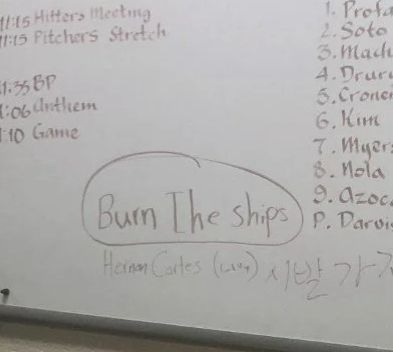 11:15 Hitters Meeting
11:15 Pitchers Stretch
1:35 BP
1:06 Anthem
1:10 Game
1. Profa
2. Soto
3. Mach
4. Drury
5. Cronen
6. Kim
7. Myers
8. Nola
9. Azoc
P. Darvis
Burn The ships
Hernan Cortes